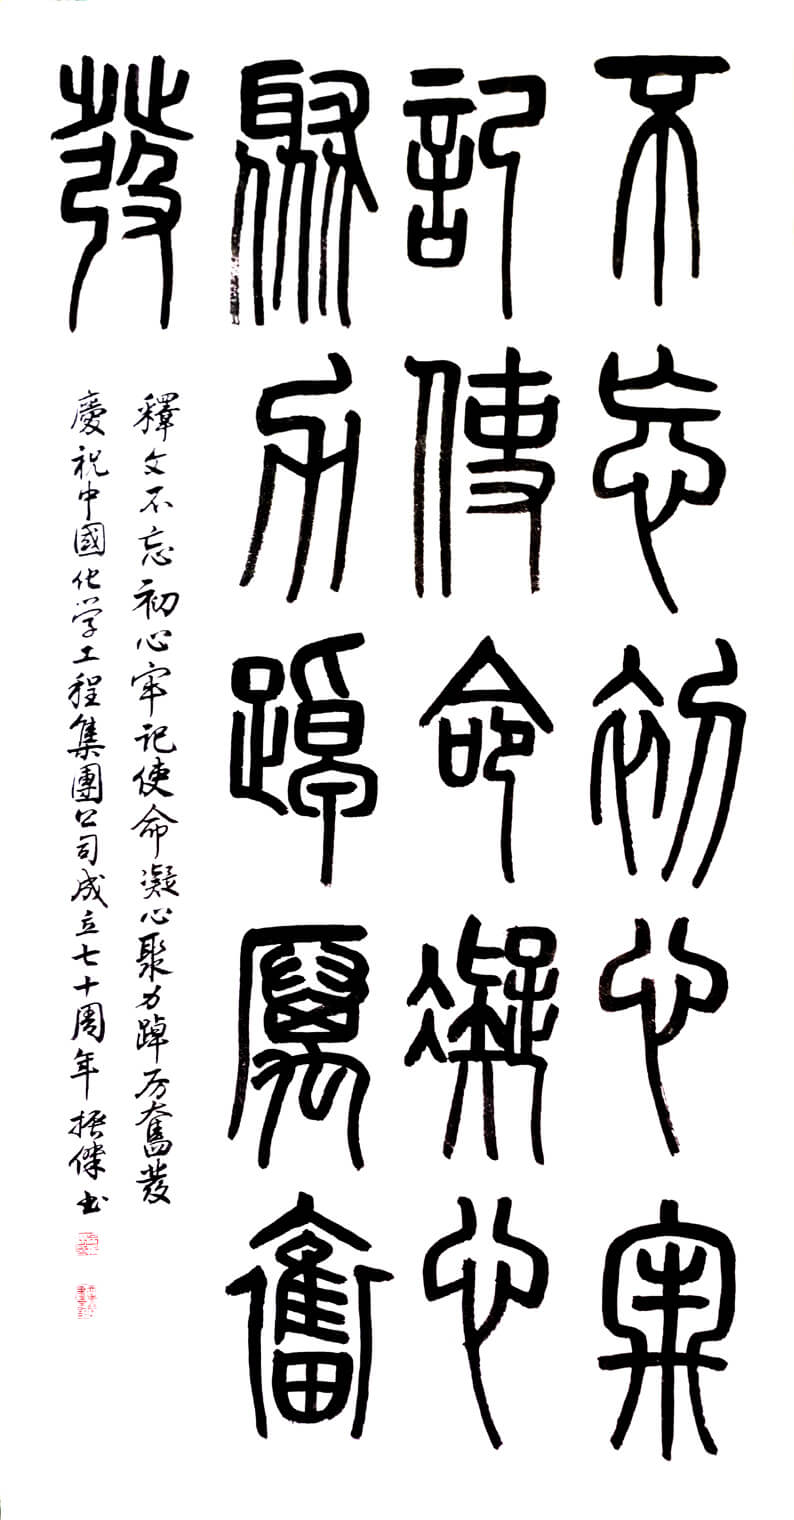 不忘初心牢
記使命凝心
聚力踔厲奮
發
釋文不忘初心牢記使命凝心聚力踔厉奮發
慶祝中國化学工程集團公司成立七十周年振傑书